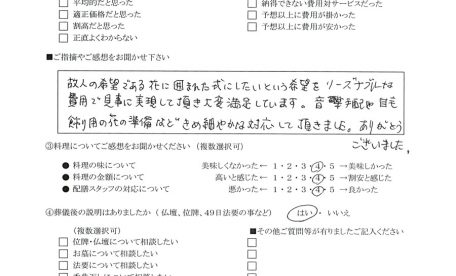 □ 平均的だと思った
□ 適正価格だと思った
□ 割高だと思った
□ 正直よくわからない
□ 納得できない費用対サービスだった
□ 予想以上に費用が掛かった
□ 予想以上に費用が安かった
■ご指摘やご感想をお聞かせ下さい
故人の希望である花に囲まれた式にしたいという希望をリーズナブルな
費用で見事に実現して頂き大変満足しています。音響手配や自宅
飾り用の花の準備などきめ細やかな対応して頂きました。ありがとう
ございました。
③料理についてご感想をお聞かせください(複数選択可)
● 料理の味について 美味しくなかった← 1・2・3・4・5 →美味しかった
● 料理の金額について 高いと感じた← 1・2・3・4・5 →割安と感じた
● 配膳スタッフの対応について 悪かった← 1・2・3・4・5 →良かった
④葬儀後の説明はありましたか(仏壇、位牌、49日法要の事など) はい・いいえ
(複数選択可)
□ 位牌・仏壇について相談したい
□ お墓について相談したい
□ 法要について相談したい
■その他ご質問等が有りましたご記入ください